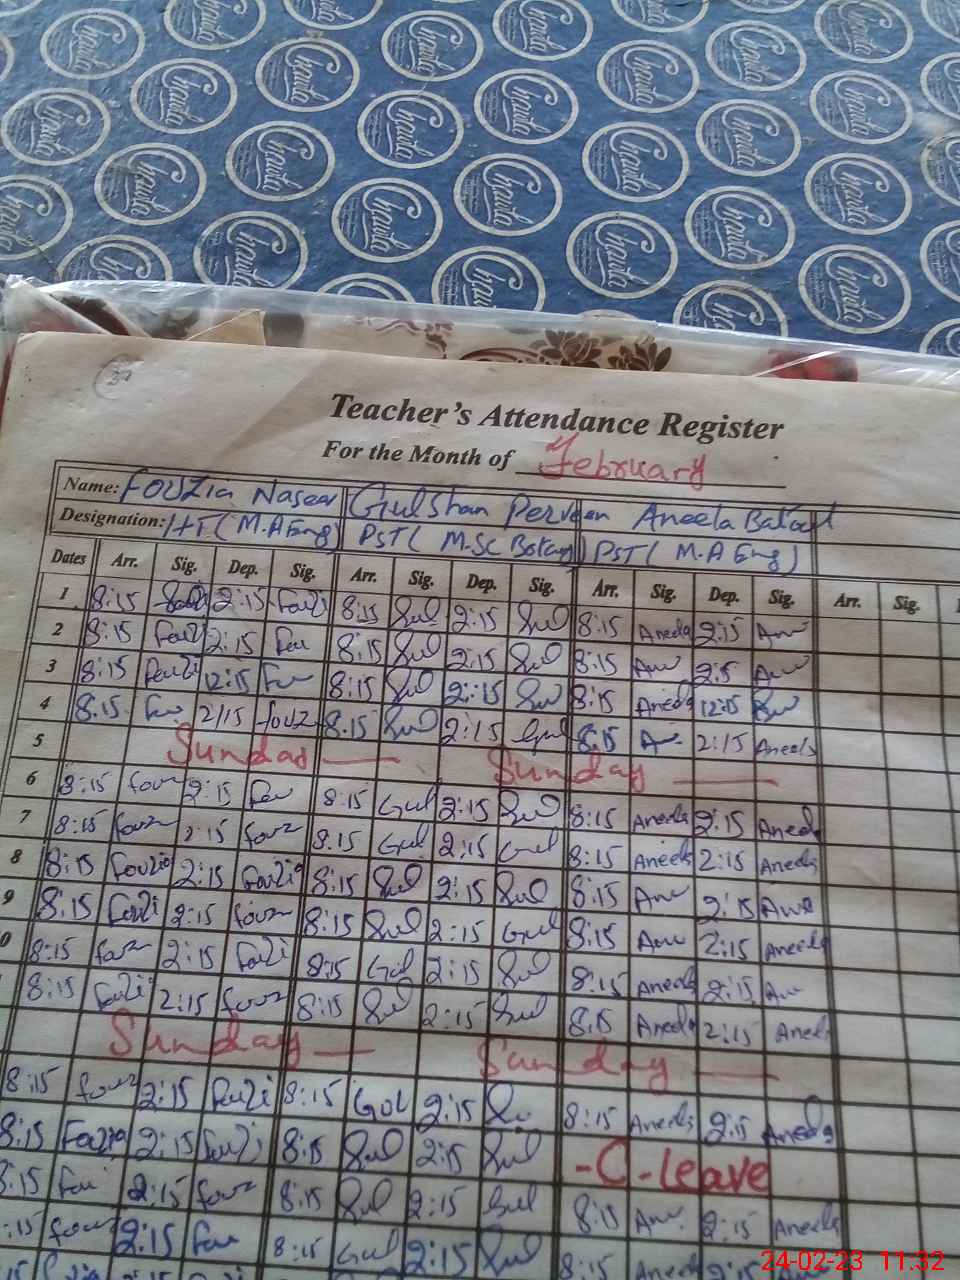 Chawla
Teacher's Attendance Register
For the Month of February
Name: Fouzia Naseer Gulshan Perveen Aneela Batool
Designation: HT (M.A Eng) PST ( M.SC Botany) PST ( M.A Eng )
Dates Arr. Sig. Dep. Sig. Arr. Sig. Dep. Sig. Arr. Sig. Dep. Sig. Arr. Sig.
1 8:15 2:15 Fouzi 8:15 Gul 2:15 Gul 8:15 Aneela 2:15 An
2 8:15 Fouzi 2:15 Fou 8:15 Gul 2:15 Gul 8:15 An 2:15 An
3 8:15 Fouzi 12:15 Fou 8:15 Gul 2:15 Gul 8:15 Aneela 12:15
4 8:15 Fou 2:15 fouz 8:15 Gul 2:15 Gul 8:15 An 2:15 Aneela
5 Sunday Sunday
6 8:15 fouz 2:15 Fou 8:15 Gul 2:15 Gul 8:15 Aneela 2:15 Aneela
7 8:15 fouz 2:15 fouz 8:15 Gul 2:15 Gul 8:15 Aneela 2:15 Aneela
8 8:15 Fouzia 2:15 Fouzia 8:15 Gul 2:15 Gul 8:15 An 2:15 Ane
9 8:15 Fouzi 2:15 fouz 8:15 Gul 2:15 Gul 8:15 An 2:15 Aneela
0 8:15 fouz 2:15 Fouzi 8:15 Gul 2:15 Gul 8:15 Aneela 2:15 An
8:15 Fouzi 2:15 fouz 8:15 Gul 2:15 Gul 8:15 Aneela 2:15 Aneela
Sunday Sunday
8:15 fouz 2:15 Fouzi 8:15 Gul 2:15 8:15 Aneela 2:15 Aneela
8:15 Fouzia 2:15 Fouzi 8:15 Gul 2:15 Gul - C - Leave
8:15 Fou 2:15 fouz 8:15 Gul 2:15 Gul 8:15 An 2:15 Aneela
:15 fouz 2:15 Fou 8:15 Gul 2:15 Gul 8:15 Aneela 2:15 An
24-02-23 11:32